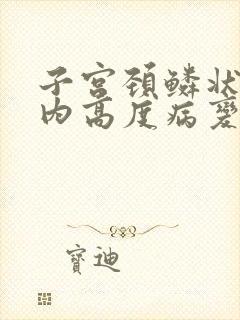 子宫颈鳞状
内高度病变
寶迪